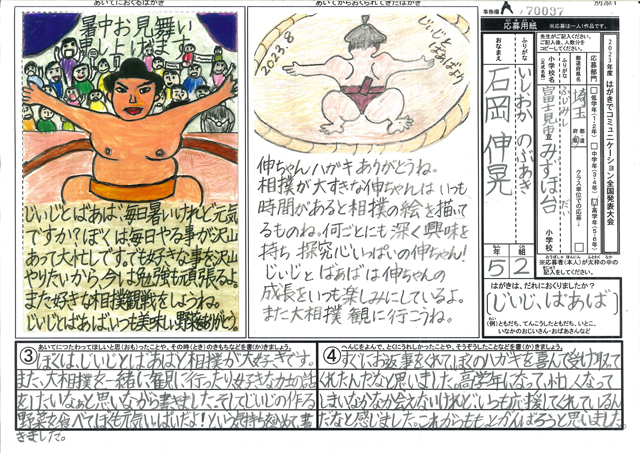 あいてにおくるはがき
暑中お見舞い
申し上げます
じいじとばあば、毎日暑いけれど元気
ですか?ぼくは毎日やる事が沢山
あって大忙しです。でも好きな事を沢山
やりたいから、今は勉強も頑張るよ。
また好きな相撲観戦をしようね。
じいじとばあば、いつも美味しい野菜ありがとう。
あいてからおくられてきたはがき
2023.8
じいじ
ばあばより
伸ちゃんハガキありがとうね。
相撲が大すきな伸ちゃんは いつも
時間があると相撲の絵を描いて
るものね。何ごとにも 深く興味を
持ち 探究心いっぱいの伸ちゃん!
じいじと ばあばは 伸ちゃんの
成長をいつも楽しみにしているよ。
また大相撲 観に行こうね。
事務欄
A
70097
応募用紙
※応募は一人1作品です。
先生がご記入ください。
ご記入後、人数分を
コピーしてください。
2023年度 はがきでコミュニケーション全国発表大会
応募部門
低学年(1・2年)
中学年(3・4年)
高学年(5・6年)
都道府県名
埼玉
都 道 府 県
クラス単位での応募
ふりがな
小学校名
(正式名称)
ふじみし
富士見市立みずほ台
だい
小学校
ふりがな
おなまえ
いしおか のぶあき
石岡 伸晃
5年
2組
※応募者(本人)が太枠の中の
記入をしてください。
はがきは、だれにおくりましたか?
(じいじ、ばあば)
(例)ともだち、てんこうしたともだち、いとこ、
いなかのおじいさん・おばあさんなど
③あいてにつたわってほしいと思(おも)ったことや、その時(とき)のきもちなどを書(か)きましょう。
ぼくは、じいじとばあばと相撲が大好きです。
また、大相撲を一緒に観に行ったり好きな力士の話
をしたいなぁと思いながら書きました。そしてじいじの作る
野菜を食べてぼくも元気いっぱいだよ!という気持ちを込めて書
きました。
④へんじをよんで、とくにうれしかったことや、そうぞうしたことなどを書(か)きましょう。
すぐにお返事をくれて、ぼくのハガキを喜んで受け取って
くれたんだなと思いました。高学年になって、忙しくなって
しまいなかなか会えないけれど、いつも応援してくれているん
だなと感じました。これからももっとがんばろうと思いました。